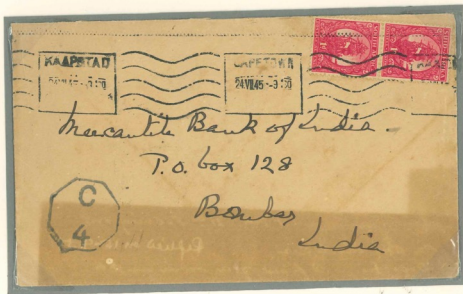 KAAPSTAD
CAPETOWN
24 VII 45 - 9:
Mercantile Bank of India
P.O. box 128
Bombay
India
C
4